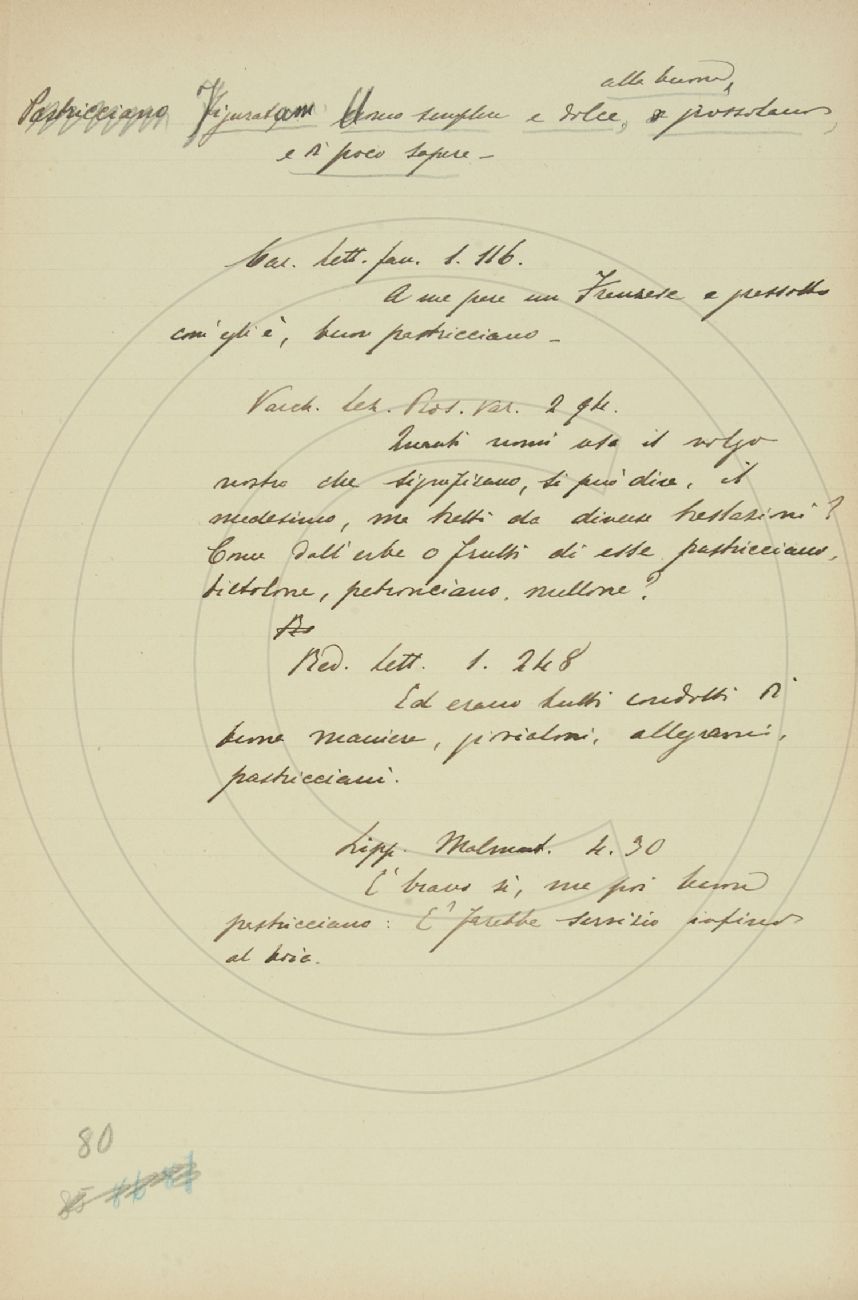 alla buona,
Pastricciano Figuratam Uomo semplice e dolce, e grossolano,
e di poco sapere -
Car. Lett. fam. 1. 116.
A me pare un Franzese e pessotto
com' egli è, buon pastricciano -
Varch. Lez. Pros. var. 2 94.
Quanti nomi usa il volgo
nostro che significano, si può dire, il
medesimo, ma tratti da diverse traslazioni?
Come dall'erbe o frutti di esse pastricciano,
bietolone, petronciano, mellone?
Re
Red. Lett. 1. 248
Ed erano tutti condotti di
buone maniere, giovialoni, allegroni,
pastricciani.
Lipp. Malmant. 4. 30
E' bravo sì, ma poi buon
pastricciano: E' farebbe servizio infino
al boia.
80
85 86 81